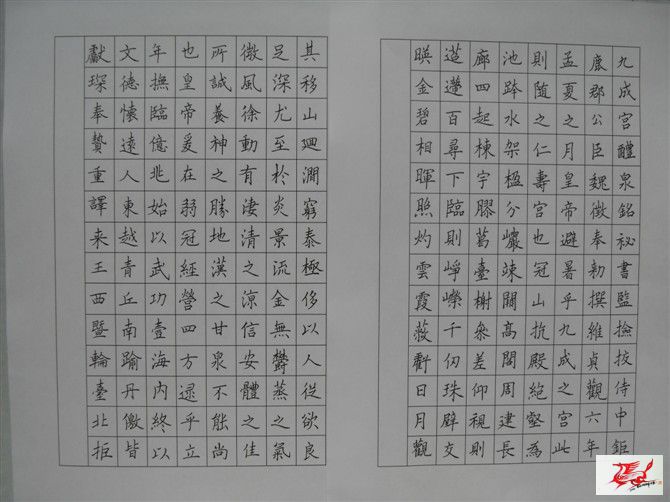 九成宮醴泉銘祕書監撿挍侍中鉅
鹿郡公臣魏徵奉勑撰維貞觀六年
孟夏之月皇帝避暑乎九成之宮此
則随之仁壽宮也冠山抗殿絕壑為
池跨水架楹分巖竦闕高閣周建長
廊四起棟宇膠葛臺榭叅差仰視則
迢遰百尋下臨則崢嶸千仞珠璧交
暎金碧相暉照灼雲霞蔽虧日月觀
其移山迴澗窮泰極侈以人從欲良
足深尤至於炎景流金無鬱蒸之氣
微風徐動有淒清之涼信安體之佳
所誠養神之勝地漢之甘泉不能尚
也皇帝爰在弱冠經營四方逮乎立
年撫臨億兆始以武功壹海內終以
文德懷遠人東越青丘南踰丹儌皆
獻琛奉贄重譯来王西暨輪臺北拒